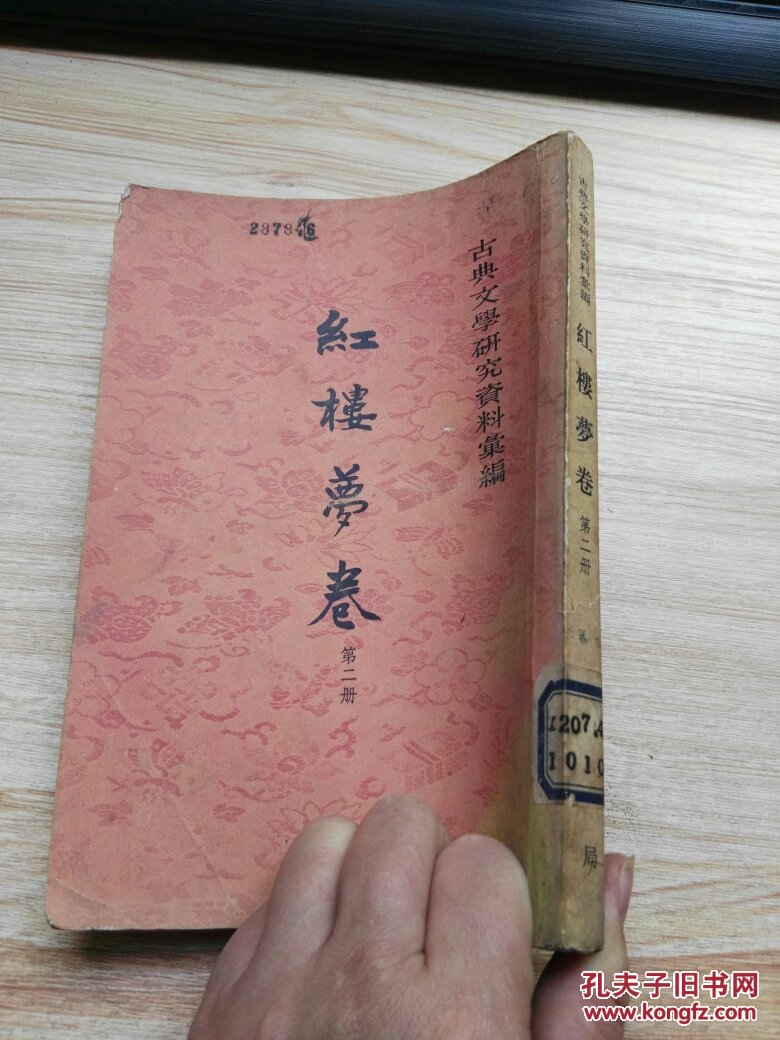 古典文學研究資料彙編
紅樓夢卷
第二册
古典文學研究資料彙編 紅樓夢卷 第二册
局
I207.4
1010
孔夫子旧书网
www.kongfz.com